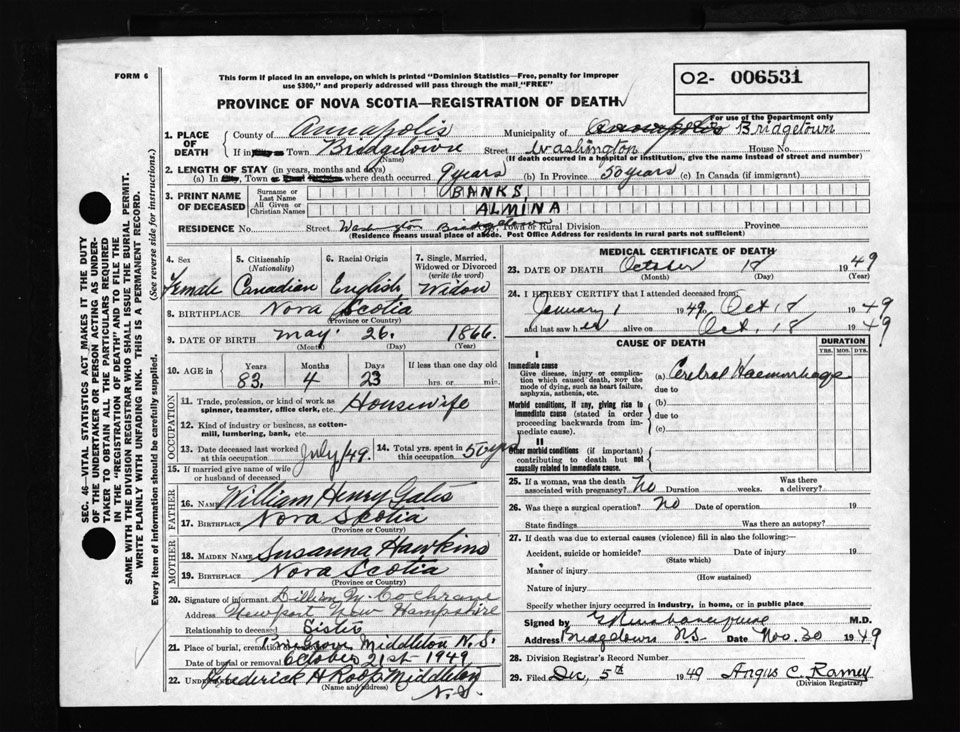 FORM 6
This form if placed in an envelope, on which is printed "Dominion Statistics—Free, penalty for improper
use $300," and properly addressed will pass through the mail "FREE"
O2- 006531
For use of the Department only
PROVINCE OF NOVA SCOTIA—REGISTRATION OF DEATH
1. PLACE OF DEATH
County of Annapolis Municipality of Bridgetown
If in Town Bridgetown Street Washington House No.
(Name) (If death occurred in a hospital or institution, give the name instead of street and number)
2. LENGTH OF STAY (in years, months and days)
(a) In City, Town or where death occurred 9 years (b) In Province 50 years (c) In Canada (if immigrant)
3. PRINT NAME OF DECEASED
Surname or Last Name BANKS
All Given or Christian Names ALMINA
RESIDENCE No. Street Bridgetown City, Town or Rural Division Province
(Residence means usual place of abode. Post Office Address for residents in rural parts not sufficient)
SEC. 46—VITAL STATISTICS ACT MAKES IT THE DUTY
OF THE UNDERTAKER OR PERSON ACTING AS UNDER-
TAKER TO OBTAIN ALL THE PARTICULARS REQUIRED
IN THE "REGISTRATION OF DEATH" AND TO FILE THE
SAME WITH THE DIVISION REGISTRAR WHO SHALL ISSUE THE BURIAL PERMIT.
WRITE PLAINLY WITH UNFADING INK. THIS IS A PERMANENT RECORD.
Every item of information should be carefully supplied. (See reverse side for instructions.)
4. Sex 5. Citizenship 6. Racial Origin 7. Single, Married,
(Nationality) Widowed or Divorced
(write the word)
Female Canadian English Widow
8. BIRTHPLACE Nova Scotia
(Province or Country)
9. DATE OF BIRTH May 26 1866
(Month) (Day) (Year)
10. AGE in Years Months Days If less than one day old
83 4 23 hrs. or min.
OCCUPATION
11. Trade, profession, or kind of work as
spinner, teamster, office clerk, etc. Housewife
12. Kind of industry or business, as cotton-
mill, lumbering, bank, etc.
13. Date deceased last worked at this occupation July/49 14. Total yrs. spent in this occupation 50 yrs
15. If married give name of wife
or husband of deceased
FATHER
16. Name William Henry Gates
17. Birthplace Nova Scotia
(Province or Country)
MOTHER
18. MAIDEN NAME Susanna Hawkins
19. BIRTHPLACE Nova Scotia
(Province or Country)
20. Signature of informant Cochrane
Address Newport New Hampshire
Relationship to deceased Sister
21. Place of burial, cremation Pine Grove Middleton N.S.
Date of burial or removal October 21st 1949
22. Frederick H Roop Middleton
(Name and address) N.S.
MEDICAL CERTIFICATE OF DEATH
23. DATE OF DEATH October 18 1949
(Month) (Day) (Year)
24. I HEREBY CERTIFY that I attended deceased from
January 1 1949 to Oct 18 1949
and last saw her alive on Oct. 18 1949
CAUSE OF DEATH DURATION
YRS. MOS. DYS.
I
Immediate cause
Give disease, injury or complica-
tion which caused death, not the
mode of dying, such as heart failure,
asphyxia, asthenia, etc.
(a) Cerebral Haemorrhage
due to
Morbid conditions, if any, giving rise to
immediate cause (stated in order
proceeding backwards from im-
mediate cause).
(b)
due to
(c)
II
Other morbid conditions (if important)
contributing to death but not
causally related to immediate cause.
25. If a woman, was the death associated with pregnancy? No Duration weeks. Was there a delivery?
26. Was there a surgical operation? No Date of operation 19
State findings Was there an autopsy?
27. If death was due to external causes (violence) fill in also the following:—
Accident, suicide or homicide? Date of injury 19
(State which)
Manner of injury
(How sustained)
Nature of injury
Specify whether injury occurred in industry, in home, or in public place
Signed by M.D.
Address Bridgetown NS Date Nov. 30 1949
28. Division Registrar's Record Number
29. Filed Dec, 5th 1949 Angus C. Ramey
(Division Registrar)